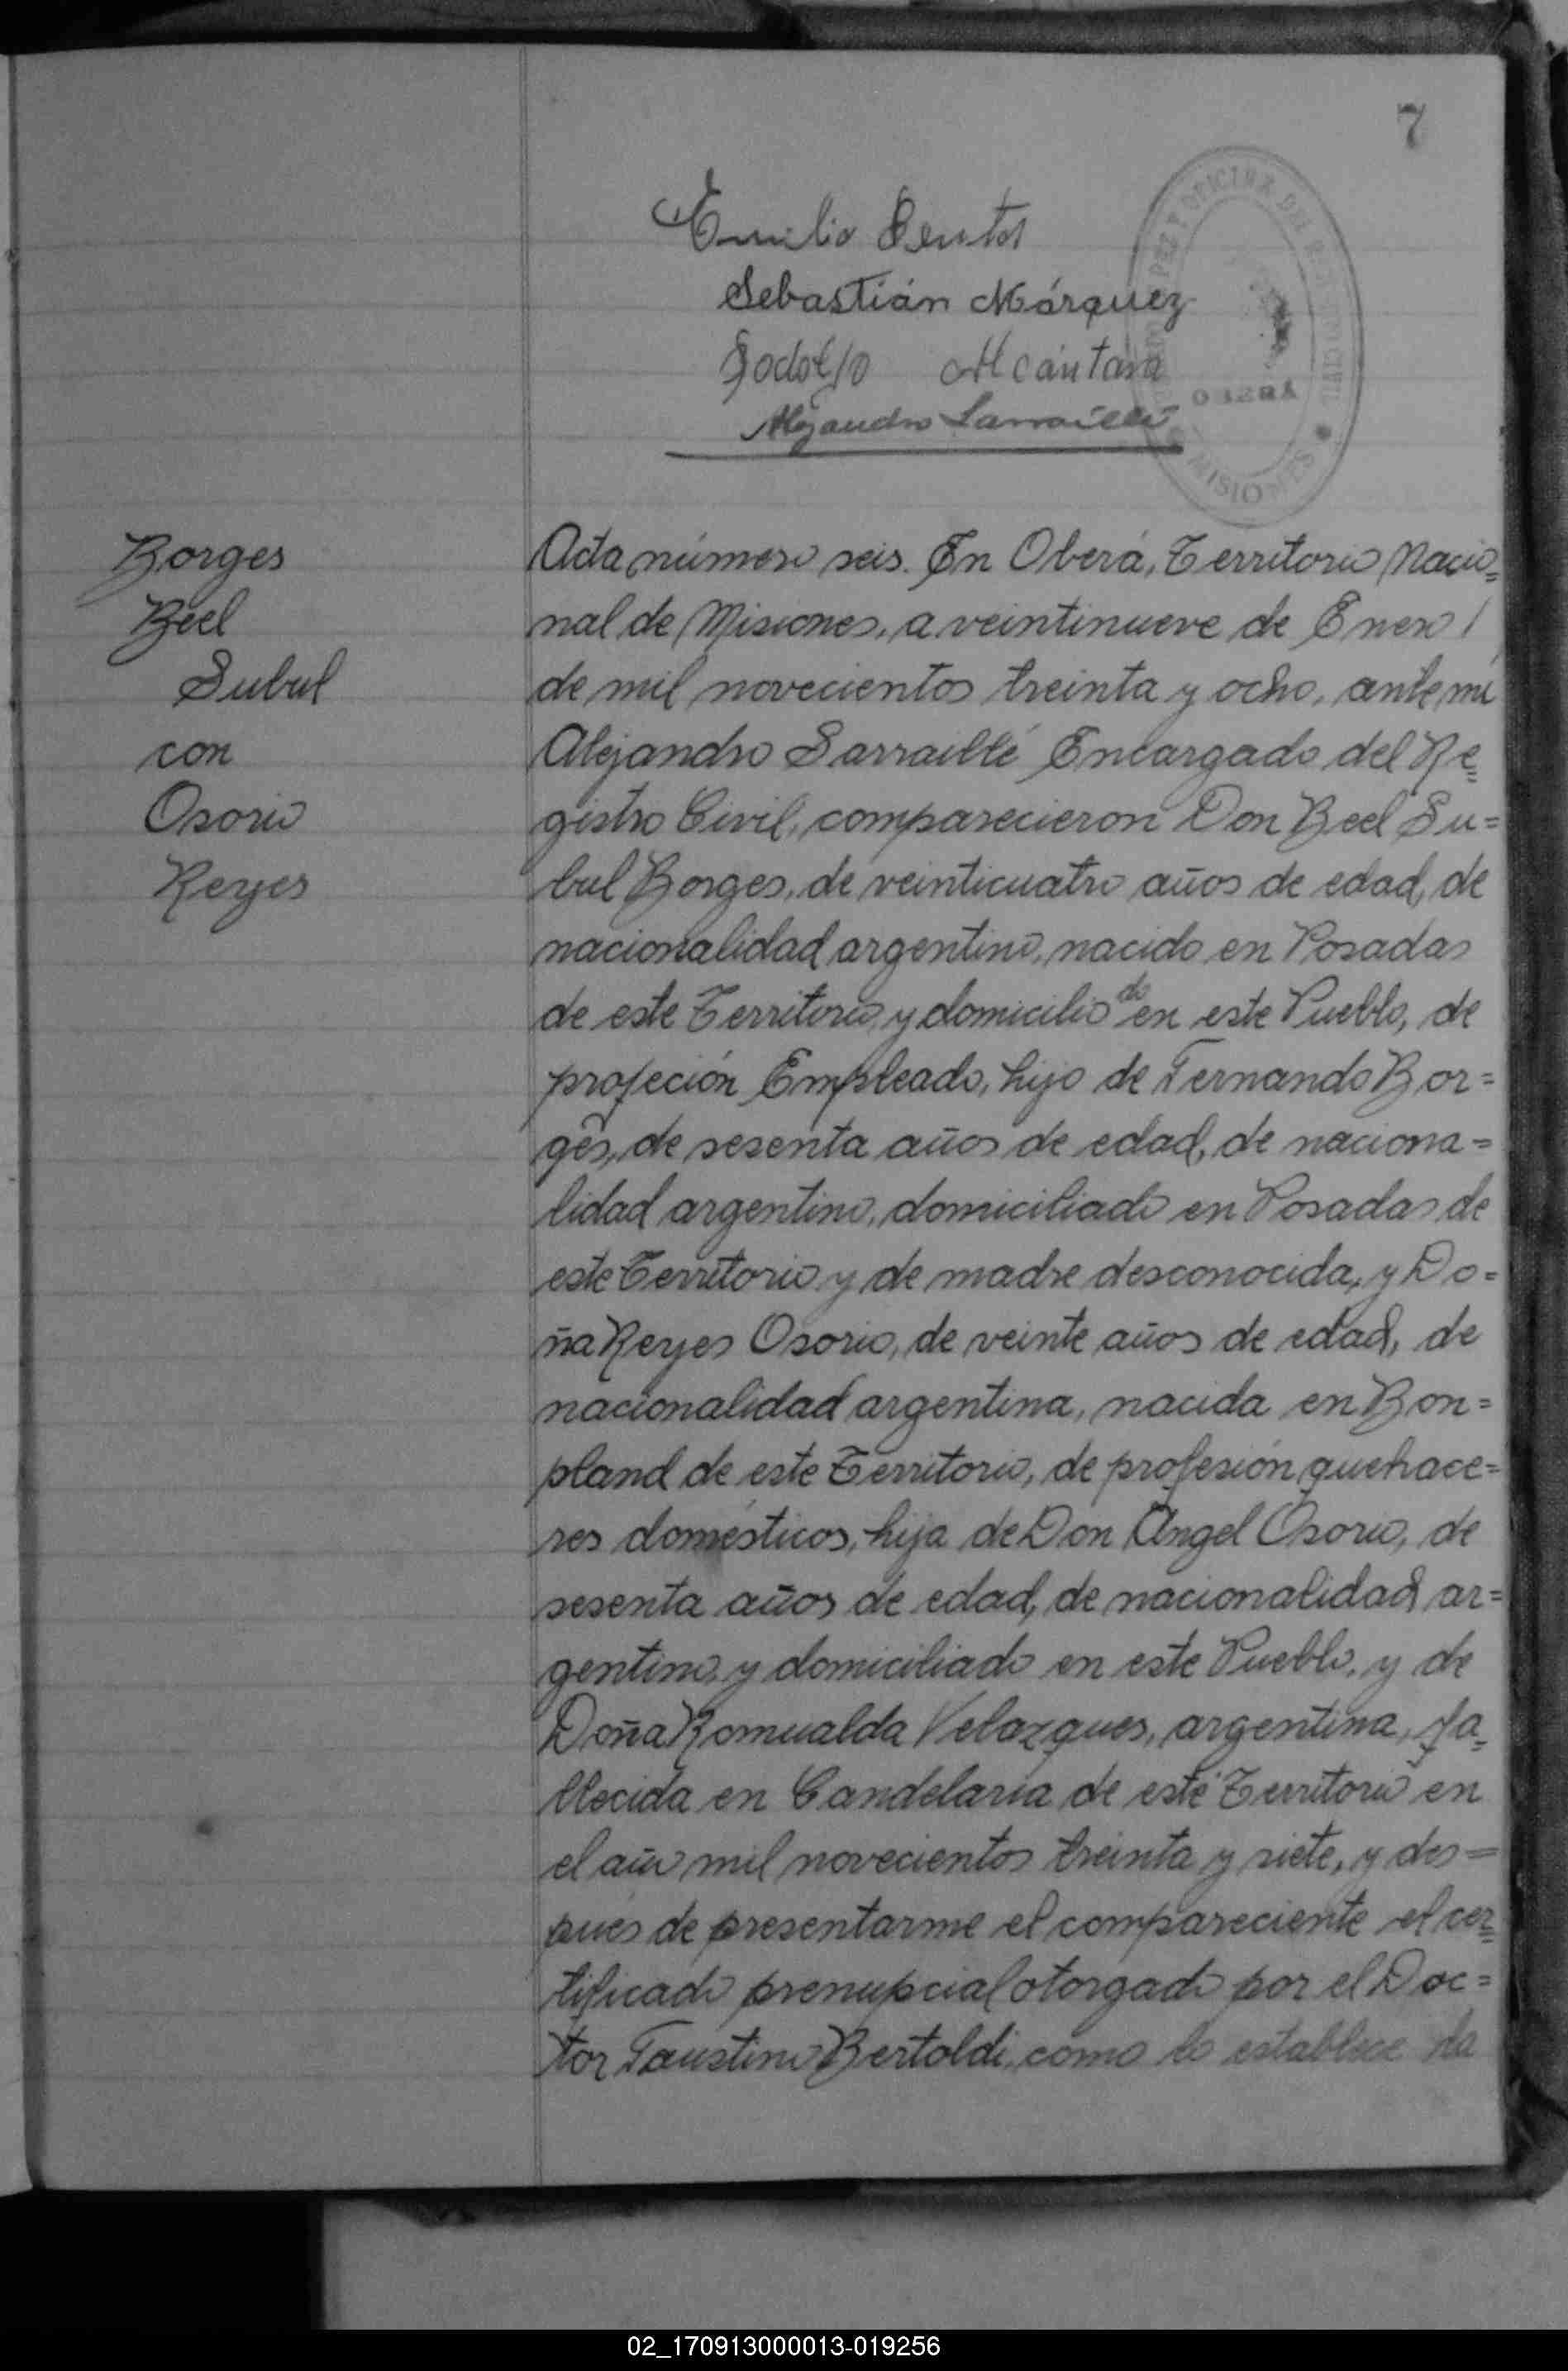 7
Emilio Bentos
Sebastián Márquez
Godolfo Alcántara
Alejandro Sarraillé
JUZGADO DE PAZ Y OFICINA DEL REGISTRO CIVIL
OBERÁ
MISIONES
Borges
Beel
Subul
con
Osorio
Reyes
Acta número seis. En Oberá, Territorio Nacio=
nal de Misiones, a veintinueve de Enero
de mil novecientos treinta y ocho, ante mí
Alejandro Sarraillé Encargado del Re=
gistro Civil, comparecieron Don Beel Su=
bul Borges, de veinticuatro años de edad, de
nacionalidad argentino, nacido en Posadas
de este Territorio, y domicilio do en este Pueblo, de
profeción Empleado, hijo de Fernando Bor=
ges, de sesenta años de edad, de naciona=
lidad argentino, domiciliado en Posadas de
este Territorio y de madre desconocida, y Do=
ña Reyes Osorio, de veinte años de edad, de
nacionalidad argentina, nacida en Bon=
pland de este Territorio, de profesión quehace=
res domésticos, hija de Don Angel Osorio, de
sesenta años de edad, de nacionalidad ar=
gentino, y domiciliado en este Pueblo, y de
Doña Romualda Velazques, argentina, fa=
llecida en Candelaria de este Territorio en
el año mil novecientos treinta y siete, y des=
pués de presentarme el compareciente el cer=
tificado prenupcial otorgado por el Doc=
tor Faustino Bertoldi, como lo establece la
02_170913000013-019256